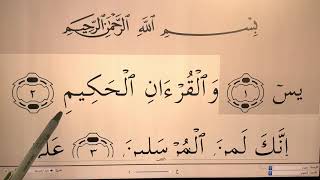 بِسْمِ اللَّهِ الرَّحْمَٰنِ الرَّحِيمِ
يسٓ ١ وَالْقُرْءَانِ الْحَكِيمِ ٢
إِنَّكَ لَمِنَ الْمُرْسَلِينَ ٣